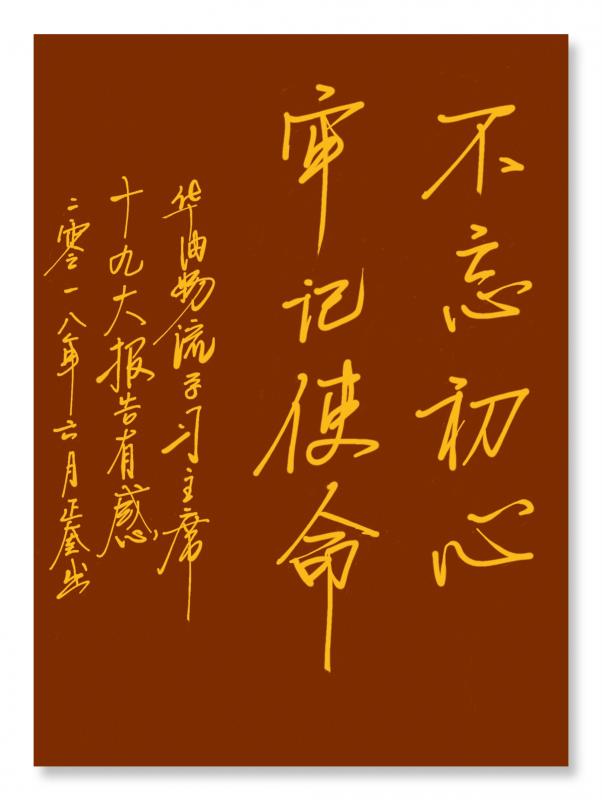 不忘初心
牢记使命
华油物流学习主席
十九大报告有感
二零一八年六月正奎出